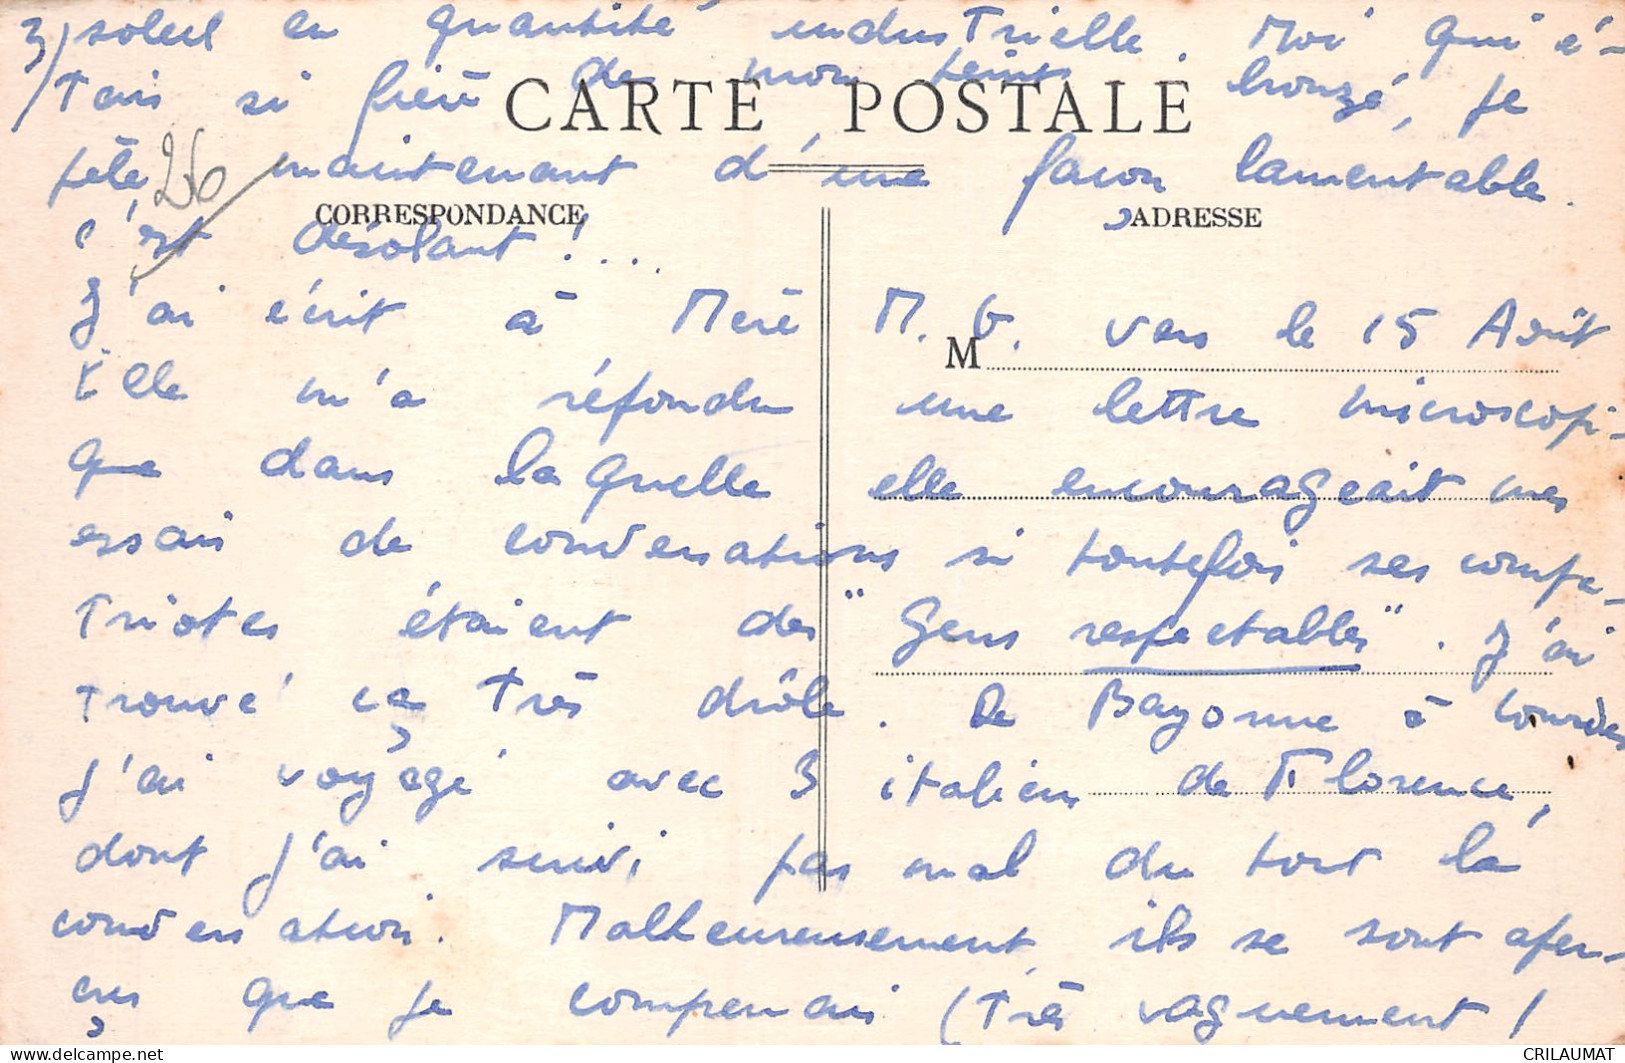 3) soleil en quantité industrielle. Moi qui é-
tais si fière de mon teint bronzé, je
CARTE POSTALE
pèle maintenant d'une façon lamentable.
260
CORRESPONDANCE
ADRESSE
c'est désolant!...
J'ai écrit à Mère M. G. vers le 15 Août
M
Elle m'a répondu une lettre microscopi-
que dans laquelle elle encourageait mes
essais de conversations si toutefois ses compa-
triotes étaient des "gens respectables". J'ai
trouvé ça très drôle. De Bayonne à Lourdes
j'ai voyagé avec 3 italiens de Florence,
dont j'ai suivi pas mal du tout la
conversation. Malheureusement, ils se sont aper-
çus que je comprenais (très vaguement!
CRILAUMAT